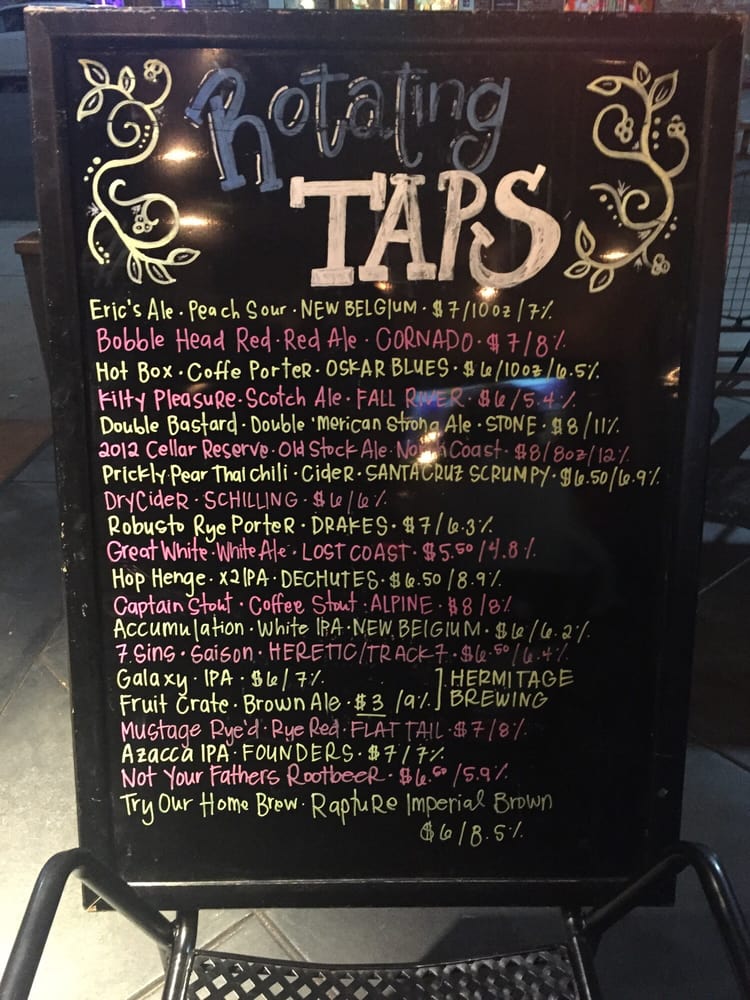 Rotating
TAPS
Eric's Ale · Peach Sour · NEW BELGIUM · $7/10oz/7%
Bobble Head Red · Red Ale · CORNADO · $7/8%
Hot Box · Coffe Porter · OSKAR BLUES · $6/10oz/6.5%
Kilty Pleasure · Scotch Ale · FALL RIVER · $6/5.4%
Double Bastard · Double 'merican Strong Ale · STONE · $8/11%
2012 Cellar Reserve · Old Stock Ale · North Coast · $8/8oz/12%
Prickly Pear Thai Chili · Cider · SANTA CRUZ SCRUMPY · $6.50/6.9%
Dry Cider · SCHILLING · $6/6%
Robusto Rye Porter · DRAKES · $7/6.3%
Great White · White Ale · LOST COAST · $5.50/4.8%
Hop Henge · x2 IPA · DECHUTES · $6.50/8.9%
Captain Stout · Coffee Stout · ALPINE · $8/8%
Accumulation · White IPA · NEW BELGIUM · $6/6.2%
7 Sins · Saison · HERETIC/TRACK 7 · $6.50/6.4%
Galaxy · IPA · $6/7% ] HERMITAGE
Fruit Crate · Brown Ale · $3/9% ] BREWING
Mustage Rye'd · Rye Red · FLAT TAIL · $7/8%
Azacca IPA · FOUNDERS · $7/7%
Not Your Fathers Rootbeer · $6.50/5.9%
Try Our Home Brew · Rapture Imperial Brown
$6/8.5%